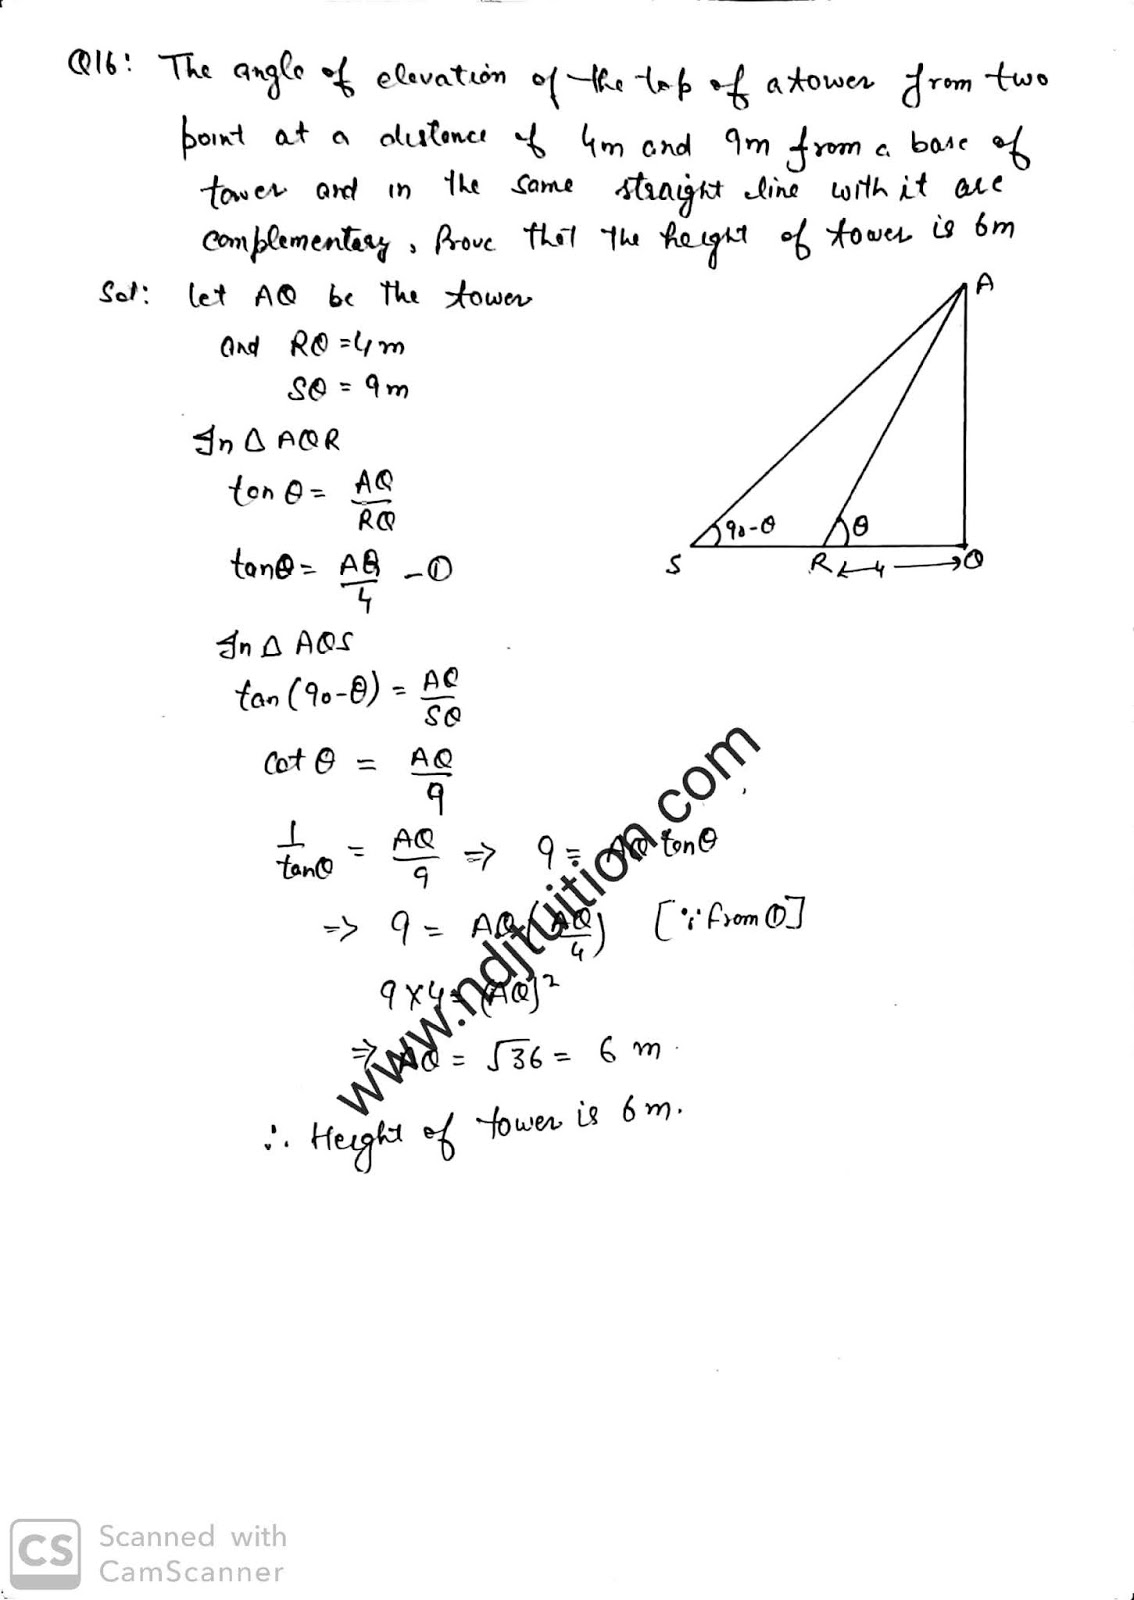 Q16: The angle of elevation of the top of a tower from two
point at a distance of 4m and 9m from a base of
tower and in the same straight line with it are
complementary, Prove that the height of tower is 6m
Sol: let AQ be the tower
and RQ = 4m
SQ = 9m
In △ AQR
tan θ = AQ/RQ
tanθ = AQ/4 - ①
In △ AQS
tan (90-θ) = AQ/SQ
cot θ = AQ/9
1/tanθ = AQ/9 => 9 = AQ tanθ
=> 9 = AQ (AQ/4) [∵ from ①]
9×4 = (AQ)²
=> AQ = √36 = 6 m.
∴ Height of tower is 6m.
A
90-θ
θ
S R 4 Q
www.ndjtuition.com
CS Scanned with
CamScanner